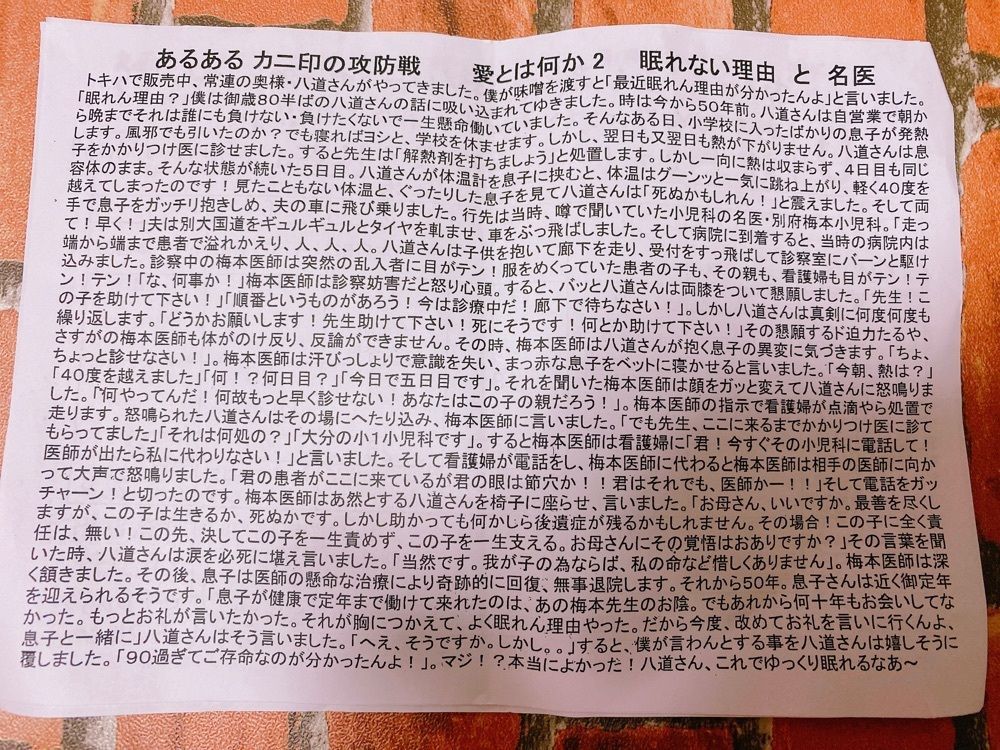 あるある カニ印の攻防戦　愛とは何か２　眠れない理由 と 名医
トキハで販売中、常連の奥様・八道さんがやってきました。僕が味噌を渡すと「最近眠れん理由が分かったんよ」と言いました。
「眠れん理由？」僕は御歳８０半ばの八道さんの話に吸い込まれてゆきました。時は今から５０年前。八道さんは自営業で朝か
ら晩までそれは誰にも負けない・負けたくないで一生懸命働いていました。そんなある日、小学校に入ったばかりの息子が発熱
します。風邪でも引いたのか？でも寝ればヨシと、学校を休ませます。しかし、翌日も又翌日も熱が下がりません。八道さんは息
子をかかりつけ医に診せました。すると先生は「解熱剤を打ちましょう」と処置します。しかし一向に熱は収まらず、４日目も同じ
容体のまま。そんな状態が続いた５日目。八道さんが体温計を息子に挟むと、体温はグーンッと一気に跳ね上がり、軽く４０度を
越えてしまったのです！見たこともない体温と、ぐったりした息子を見て八道さんは「死ぬかもしれん！」と震えました。そして両
手で息子をガッチリ抱きしめ、夫の車に飛び乗りました。行先は当時、噂で聞いていた小児科の名医・別府梅本小児科。「走っ
て！早く！」夫は別大国道をギュルギュルとタイヤを軋ませ、車をぶっ飛ばしました。そして病院に到着すると、当時の病院内は
端から端まで患者で溢れかえり、人、人、人。八道さんは子供を抱いて廊下を走り、受付をすっ飛ばして診察室にバーンと駆け
込みました。診察中の梅本医師は突然の乱入者に目がテン！服をめくっていた患者の子も、その親も、看護婦も目がテン！テ
ン！テン！「な、何事か！」梅本医師は診察妨害だと怒り心頭。すると、バッと八道さんは両膝をついて懇願しました。「先生！こ
の子を助けて下さい！」「順番というものがあろう！今は診療中だ！廊下で待ちなさい！」。しかし八道さんは真剣に何度何度も
繰り返します。「どうかお願いします！先生助けて下さい！死にそうです！何とか助けて下さい！」その懇願するド迫力たるや、
さすがの梅本医師も体がのけ反り、反論ができません。その時、梅本医師は八道さんが抱く息子の異変に気づきます。「ちょ、
ちょっと診せなさい！」。梅本医師は汗びっしょりで意識を失い、まっ赤な息子をベットに寝かせると言いました。「今朝、熱は？」
「４０度を越えました」「何！？何日目？」「今日で五日目です」。それを聞いた梅本医師は顔をガッと変えて八道さんに怒鳴りま
した。「何やってんだ！何故もっと早く診せない！あなたはこの子の親だろう！」。梅本医師の指示で看護婦が点滴やら処置で
走ります。怒鳴られた八道さんはその場にへたり込み、梅本医師に言いました。「でも先生、ここに来るまでかかりつけ医に診て
もらってました」「それは何処の？」「大分の小１小児科です」。すると梅本医師は看護婦に「君！今すぐその小児科に電話して！
医師が出たら私に代わりなさい！」と言いました。そして看護婦が電話をし、梅本医師に代わると梅本医師は相手の医師に向か
って大声で怒鳴りました。「君の患者がここに来ているが君の眼は節穴か！！君はそれでも、医師かー！！」そして電話をガッ
チャーン！と切ったのです。梅本医師はあ然とする八道さんを椅子に座らせ、言いました。「お母さん、いいですか。最善を尽くし
ますが、この子は生きるか、死ぬかです。しかし助かっても何かしら後遺症が残るかもしれません。その場合！この子に全く責
任は、無い！この先、決してこの子を一生責めず、この子を一生支える。お母さんにその覚悟はおありですか？」その言葉を聞
いた時、八道さんは涙を必死に堪え言いました。「当然です。我が子の為ならば、私の命など惜しくありません」。梅本医師は深
く頷きました。その後、息子は医師の懸命な治療により奇跡的に回復、無事退院します。それから５０年。息子さんは近く御定年
を迎えられるそうです。「息子が健康で定年まで働けて来れたのは、あの梅本先生のお陰。でもあれから何十年もお会いしてな
かった。もっとお礼が言いたかった。それが胸につかえて、よく眠れん理由やった。だから今度、改めてお礼を言いに行くんよ、
息子と一緒に」八道さんはそう言いました。「へえ、そうですか。しかし。。」すると、僕が言わんとする事を八道さんは嬉しそうに
覆しました。「９０過ぎてご存命なのが分かったんよ！」。マジ！？本当によかった！八道さん、これでゆっくり眠れるなあ～